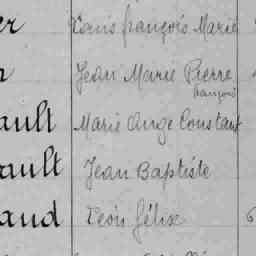 er Louis françois Marie
Jean Marie Pierre
françois
ault Marie Ange Constant
ault Jean Baptiste
aud Léon félix 6